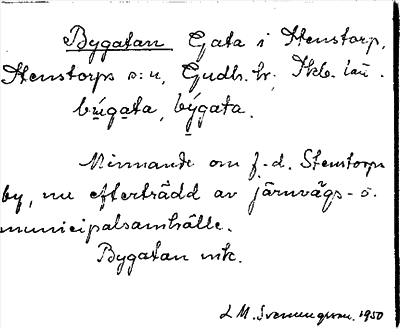 Bygatan Gata i Stenstorp,
Stenstorps s:n, Gudh. hr, Skb. län.
búgata, býgata.
Minnande om f.d. Stenstorps
by, nu efterträdd av järnvägs- o.
municipalsamhälle.
Bygatan mk.
L M. Svenungsson. 1950